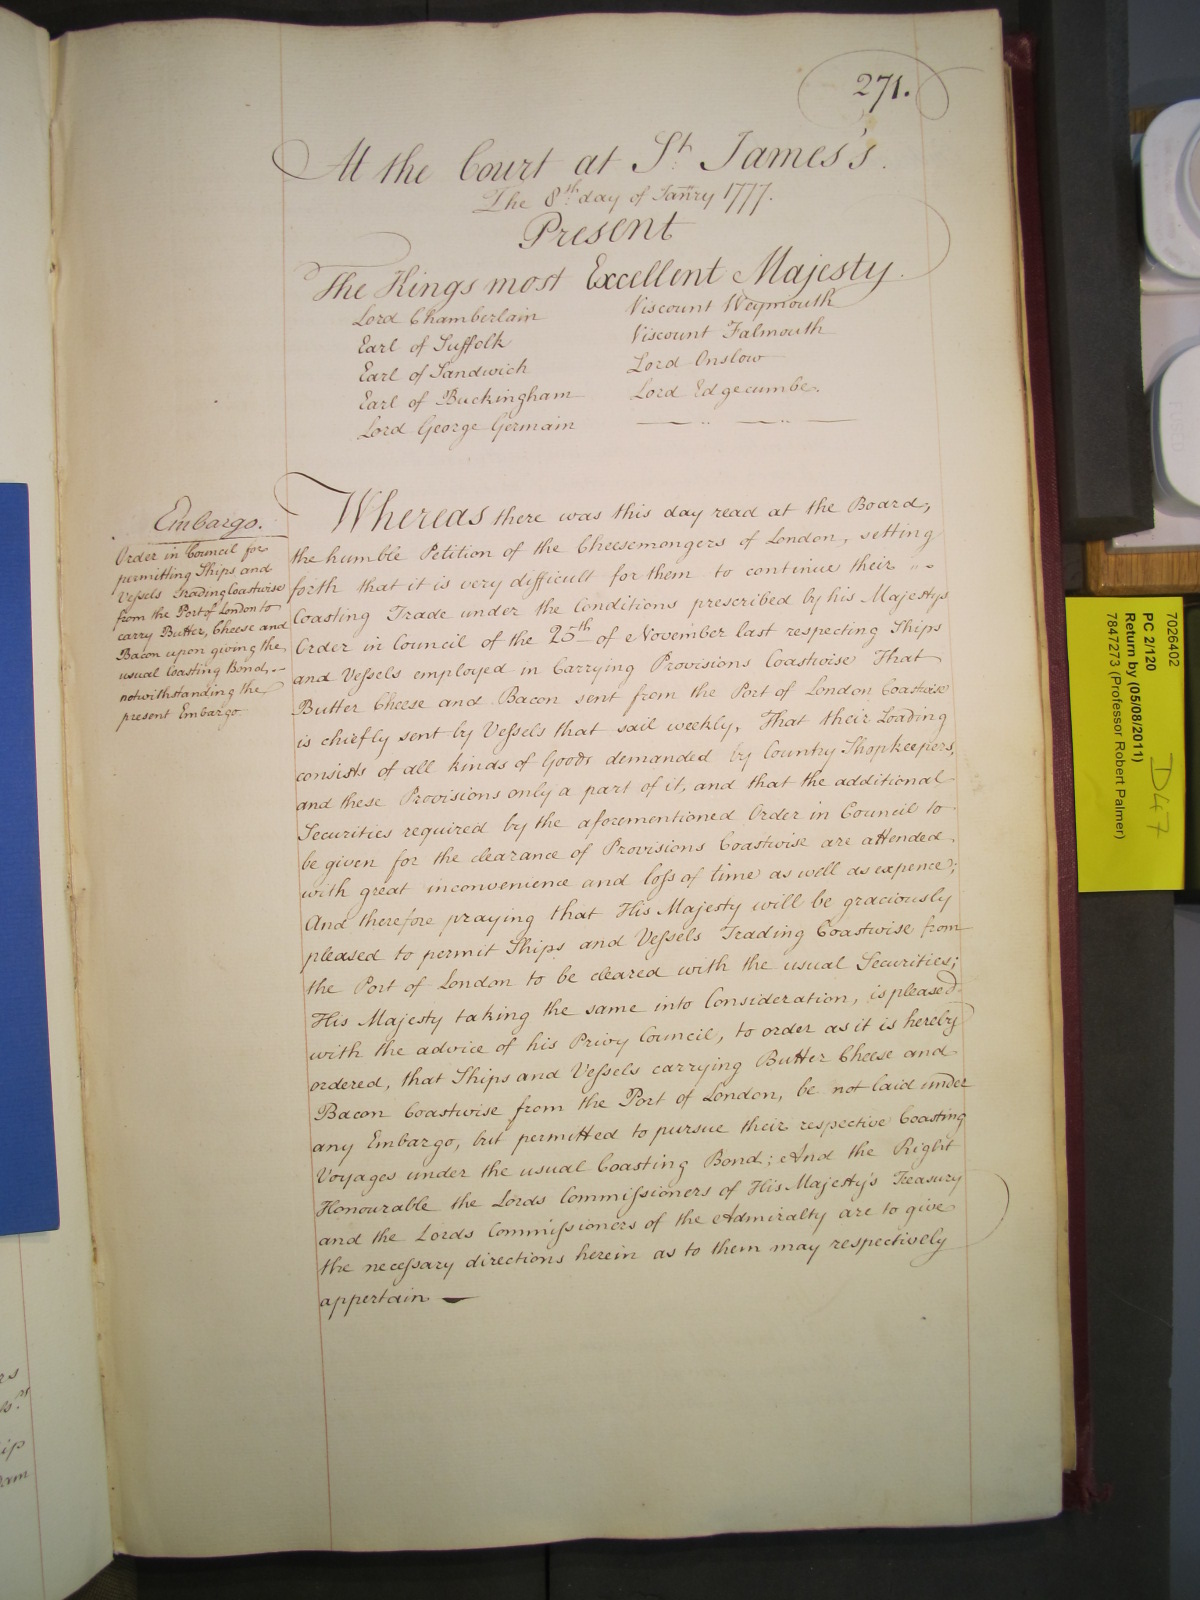 271.
At the Court at St. James's.
The 8th. day of Janry 1777.
Present
The Kings most Excellent Majesty.
Lord Chamberlain
Earl of Suffolk
Earl of Sandwich
Earl of Buckingham
Lord George Germain
Viscount Weymouth
Viscount Falmouth
Lord Onslow
Lord Edgecumbe.
Embargo.
Order in Council for
permitting Ships and
Vessels Trading Coastwise
from the Port of London to
carry Butter, Cheese and
Bacon upon giving the
usual Coasting Bond,
notwithstanding the
present Embargo.
Whereas there was this day read at the Board,
the humble Petition of the Cheesemongers of London, setting
forth that it is very difficult for them to continue their
Coasting Trade under the Conditions prescribed by his Majestys
Order in Council of the 25th of November last respecting Ships
and Vessels employed in Carrying Provisions Coastwise That
Butter Cheese and Bacon sent from the Port of London Coastwise
is chiefly sent by Vessels that sail weekly, That their Loading
consists of all kinds of Goods demanded by Country Shopkeepers,
and these Provisions only a part of it, and that the additional
Securities required by the aforementioned Order in Council to
be given for the clearance of Provisions Coastwise are attended
with great inconvenience and loss of time as well as expence;
And therefore praying that His Majesty will be graciously
pleased to permit Ships and Vessels Trading Coastwise from
the Port of London to be cleared with the usual Securities;
His Majesty taking the same into Consideration, is pleased
with the advice of his Privy Council, to order as it is hereby
ordered, that Ships and Vessels carrying Butter Cheese and
Bacon Coastwise from the Port of London, be not laid under
any Embargo, but permitted to pursue their respective Coasting
Voyages under the usual Coasting Bond; And the Right
Honourable the Lords Commissioners of His Majesty's Treasury
and the Lords Commissioners of the Admiralty are to give
the necessary directions herein as to them may respectively
appertain. —
7026402
PC 2/120
Return by (05/08/2011)
7847273 (Professor Robert Palmer)
D47